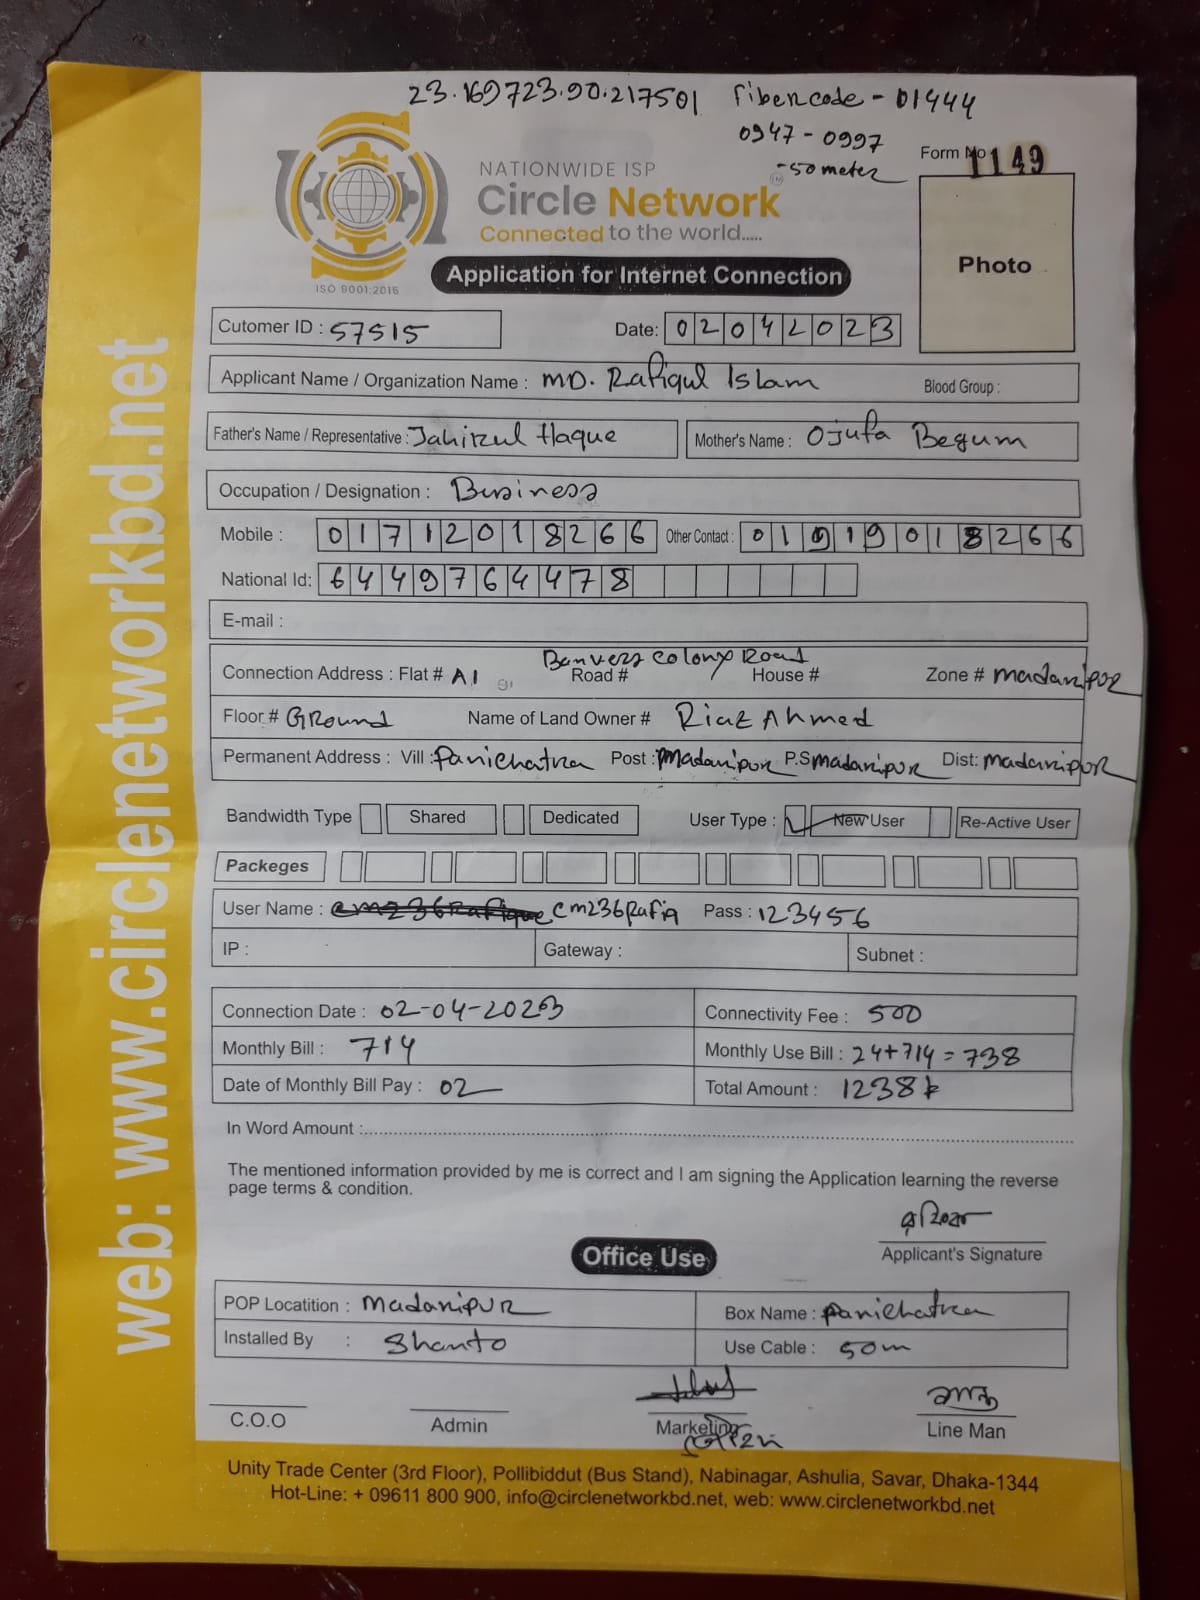 23.169723.90.217501 Fiber code - 01444
0947 - 0997
- 50 meter
Form No 1149
NATIONWIDE ISP
Circle Network
TM
Connected to the world.....
ISO 9001:2015
Application for Internet Connection
Photo
Cutomer ID : 57515 Date: 02042023
Applicant Name / Organization Name : MD. Rafiqul Islam Blood Group :
Father's Name / Representative : Jahirul Haque Mother's Name : Ojufa Begum
Occupation / Designation : Business
Mobile : 01712018266 Other Contact : 01919018266
National Id: 6449764478
E-mail :
Connection Address : Flat # A1 Road # Colony Road House # Zone # Madaripur
Floor # Ground Name of Land Owner # Riaz Ahmed
Permanent Address : Vill : Panichatra Post : Madaripur P.S Madaripur Dist: Madaripur
Bandwidth Type Shared Dedicated User Type : New User Re-Active User
Packeges
User Name : cm236Rafique cm236Rafiq Pass : 123456
IP : Gateway : Subnet :
Connection Date : 02-04-2023 Connectivity Fee : 500
Monthly Bill : 714 Monthly Use Bill : 24+714 = 738
Date of Monthly Bill Pay : 02 Total Amount : 1238
In Word Amount :
The mentioned information provided by me is correct and I am signing the Application learning the reverse
page terms & condition.
Applicant's Signature
Office Use
POP Locatition : Madaripur Box Name : Panichatra
Installed By : Shanto Use Cable : 50m
C.O.O Admin Marketing Line Man
Unity Trade Center (3rd Floor), Pollibiddut (Bus Stand), Nabinagar, Ashulia, Savar, Dhaka-1344
Hot-Line: + 09611 800 900, info@circlenetworkbd.net, web: www.circlenetworkbd.net
web: www.circlenetworkbd.net